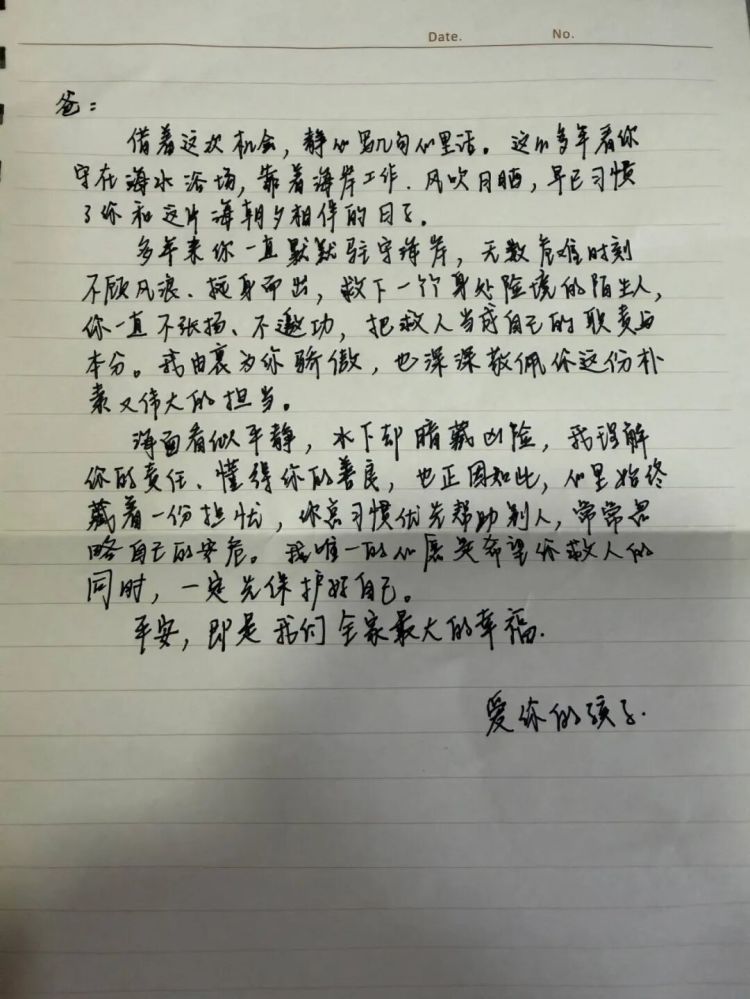 Date. No.
爸：
借着这次机会，静心写几句心里话。这么多年看你
守在海水浴场，靠着海岸工作、风吹日晒，早已习惯
了你和这片海朝夕相伴的日子。
多年来你一直默默驻守海岸，无数危难时刻
不顾风浪、挺身而出，救下一个个身处险境的陌生人，
你一直不张扬、不邀功，把救人当成自己的职责与
本分。我由衷为你骄傲，也深深敬佩你这份朴
素又伟大的担当。
海面看似平静，水下却暗藏凶险，我理解
你的责任、懂得你的善良，也正因如此，心里始终
藏着一份担忧，你总习惯优先帮助别人，常常忽
略自己的安危。我唯一的心愿是希望你救人的
同时，一定先保护好自己。
平安，即是我们全家最大的幸福.
爱你的孩子.